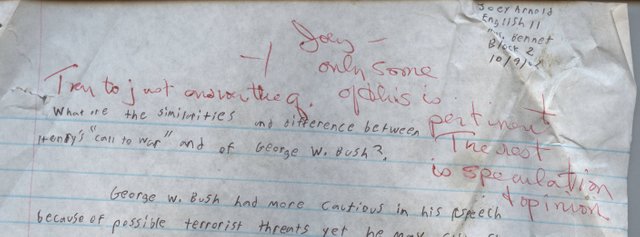 Joey Arnold
English 11
Mrs. Bennet
Block 2
Joey -
-1 only some
Try to just answer the q. of this is
pertinent
What are the similrities and difference between
The rest
Henry's "call to war" and of George W. Bush?
is speculation
+ opinion
George W. Bush had more cautious in his speech
because of possible terrorist threats yet he may